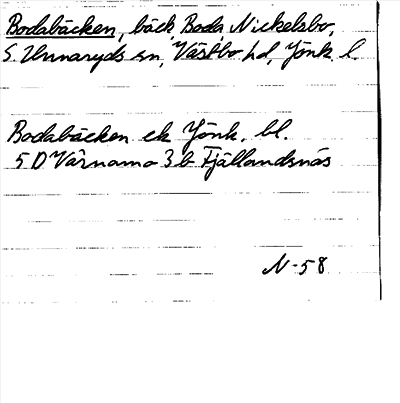 Bodabäcken, bäck, Boda, Nickelsbo,
S. Unnaryds sn, Västbo hd, Jönk l.
Bodabäcken ek Jönk. bl.
5 D Värnamo 3 b Fjällandsnäs
N-58